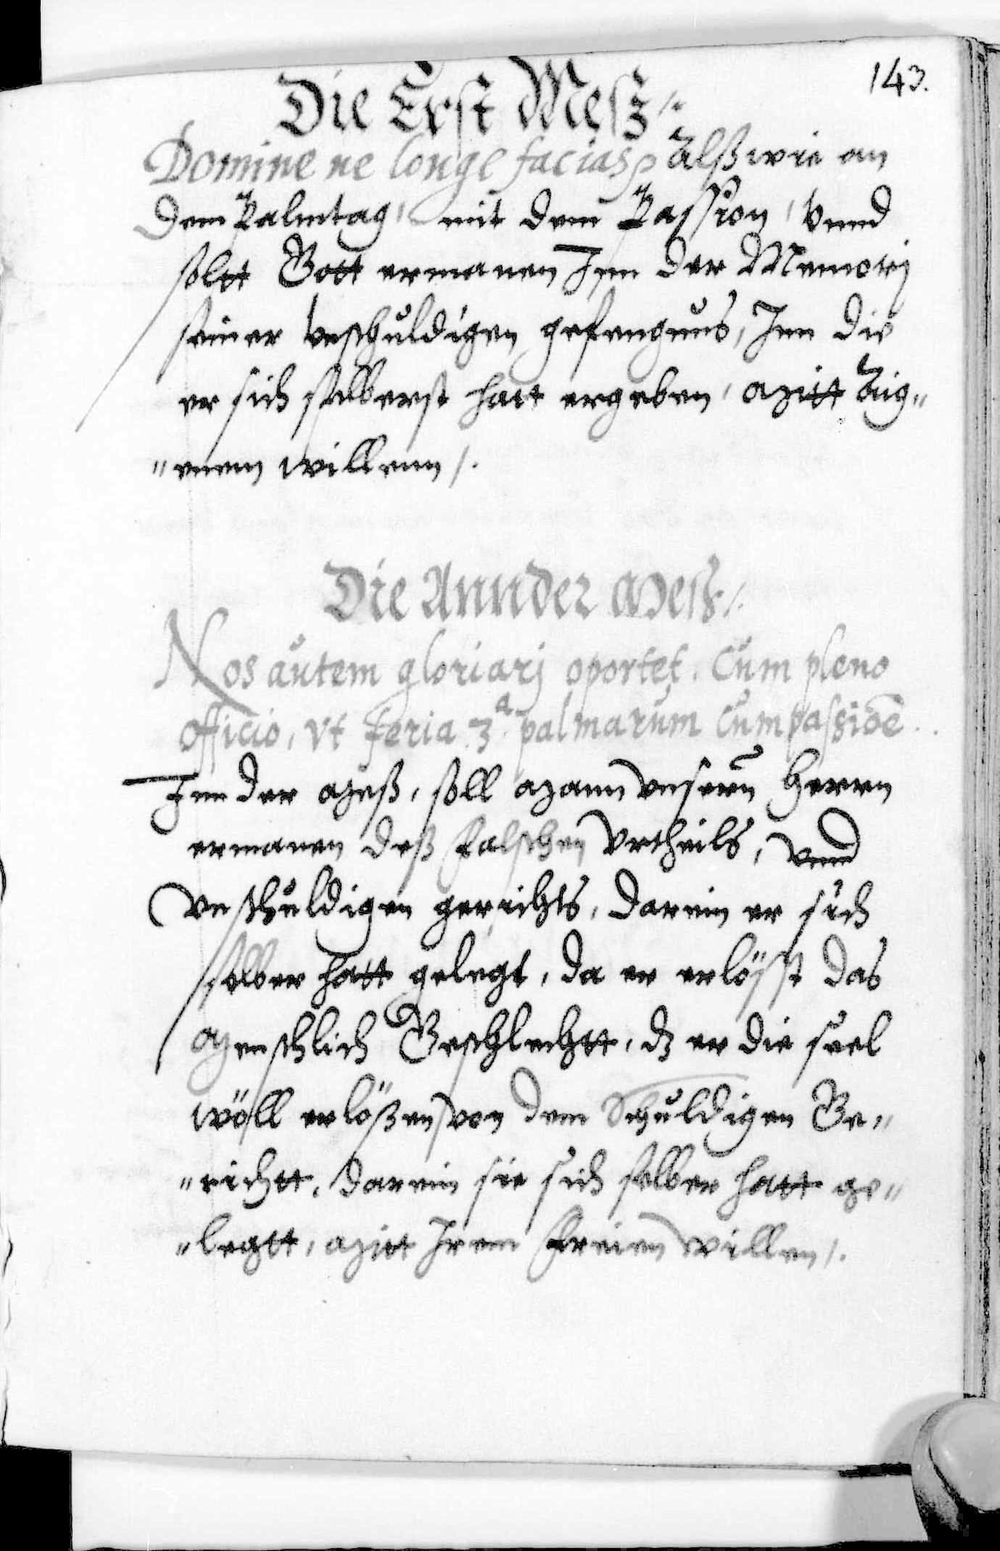 143.
Die Erst Meß /.
Domine ne longe facias p Alß wie an
dem Palmtag, mit dem Passion, vnnd
soltt Gott ermanen Inn der Memorj
seiner vnschuldigen gefengnus, Inn die
er sich selberst hatt ergeben, Mitt Aig„
„enem willenn /.
Die Annder Meß /.
Nos autem gloriarj oportet. Cum pleno
officio, vt feria 3ª palmarum Cum passioē..
Inn der Meß, soll Mann vnsern Herrn
ermanen deß falschen vrtheils, vnnd
vnschuldigen gerichts, darein er sich
selber hatt gelegt, da er erlösst das
Menschlich Geschlechtt, dz er die seel
wöll erlößen von dem Schuldigen Ge„
„richtt, darein sie sich selber hatt ge„
„legtt, Mitt Irem freien willen /.